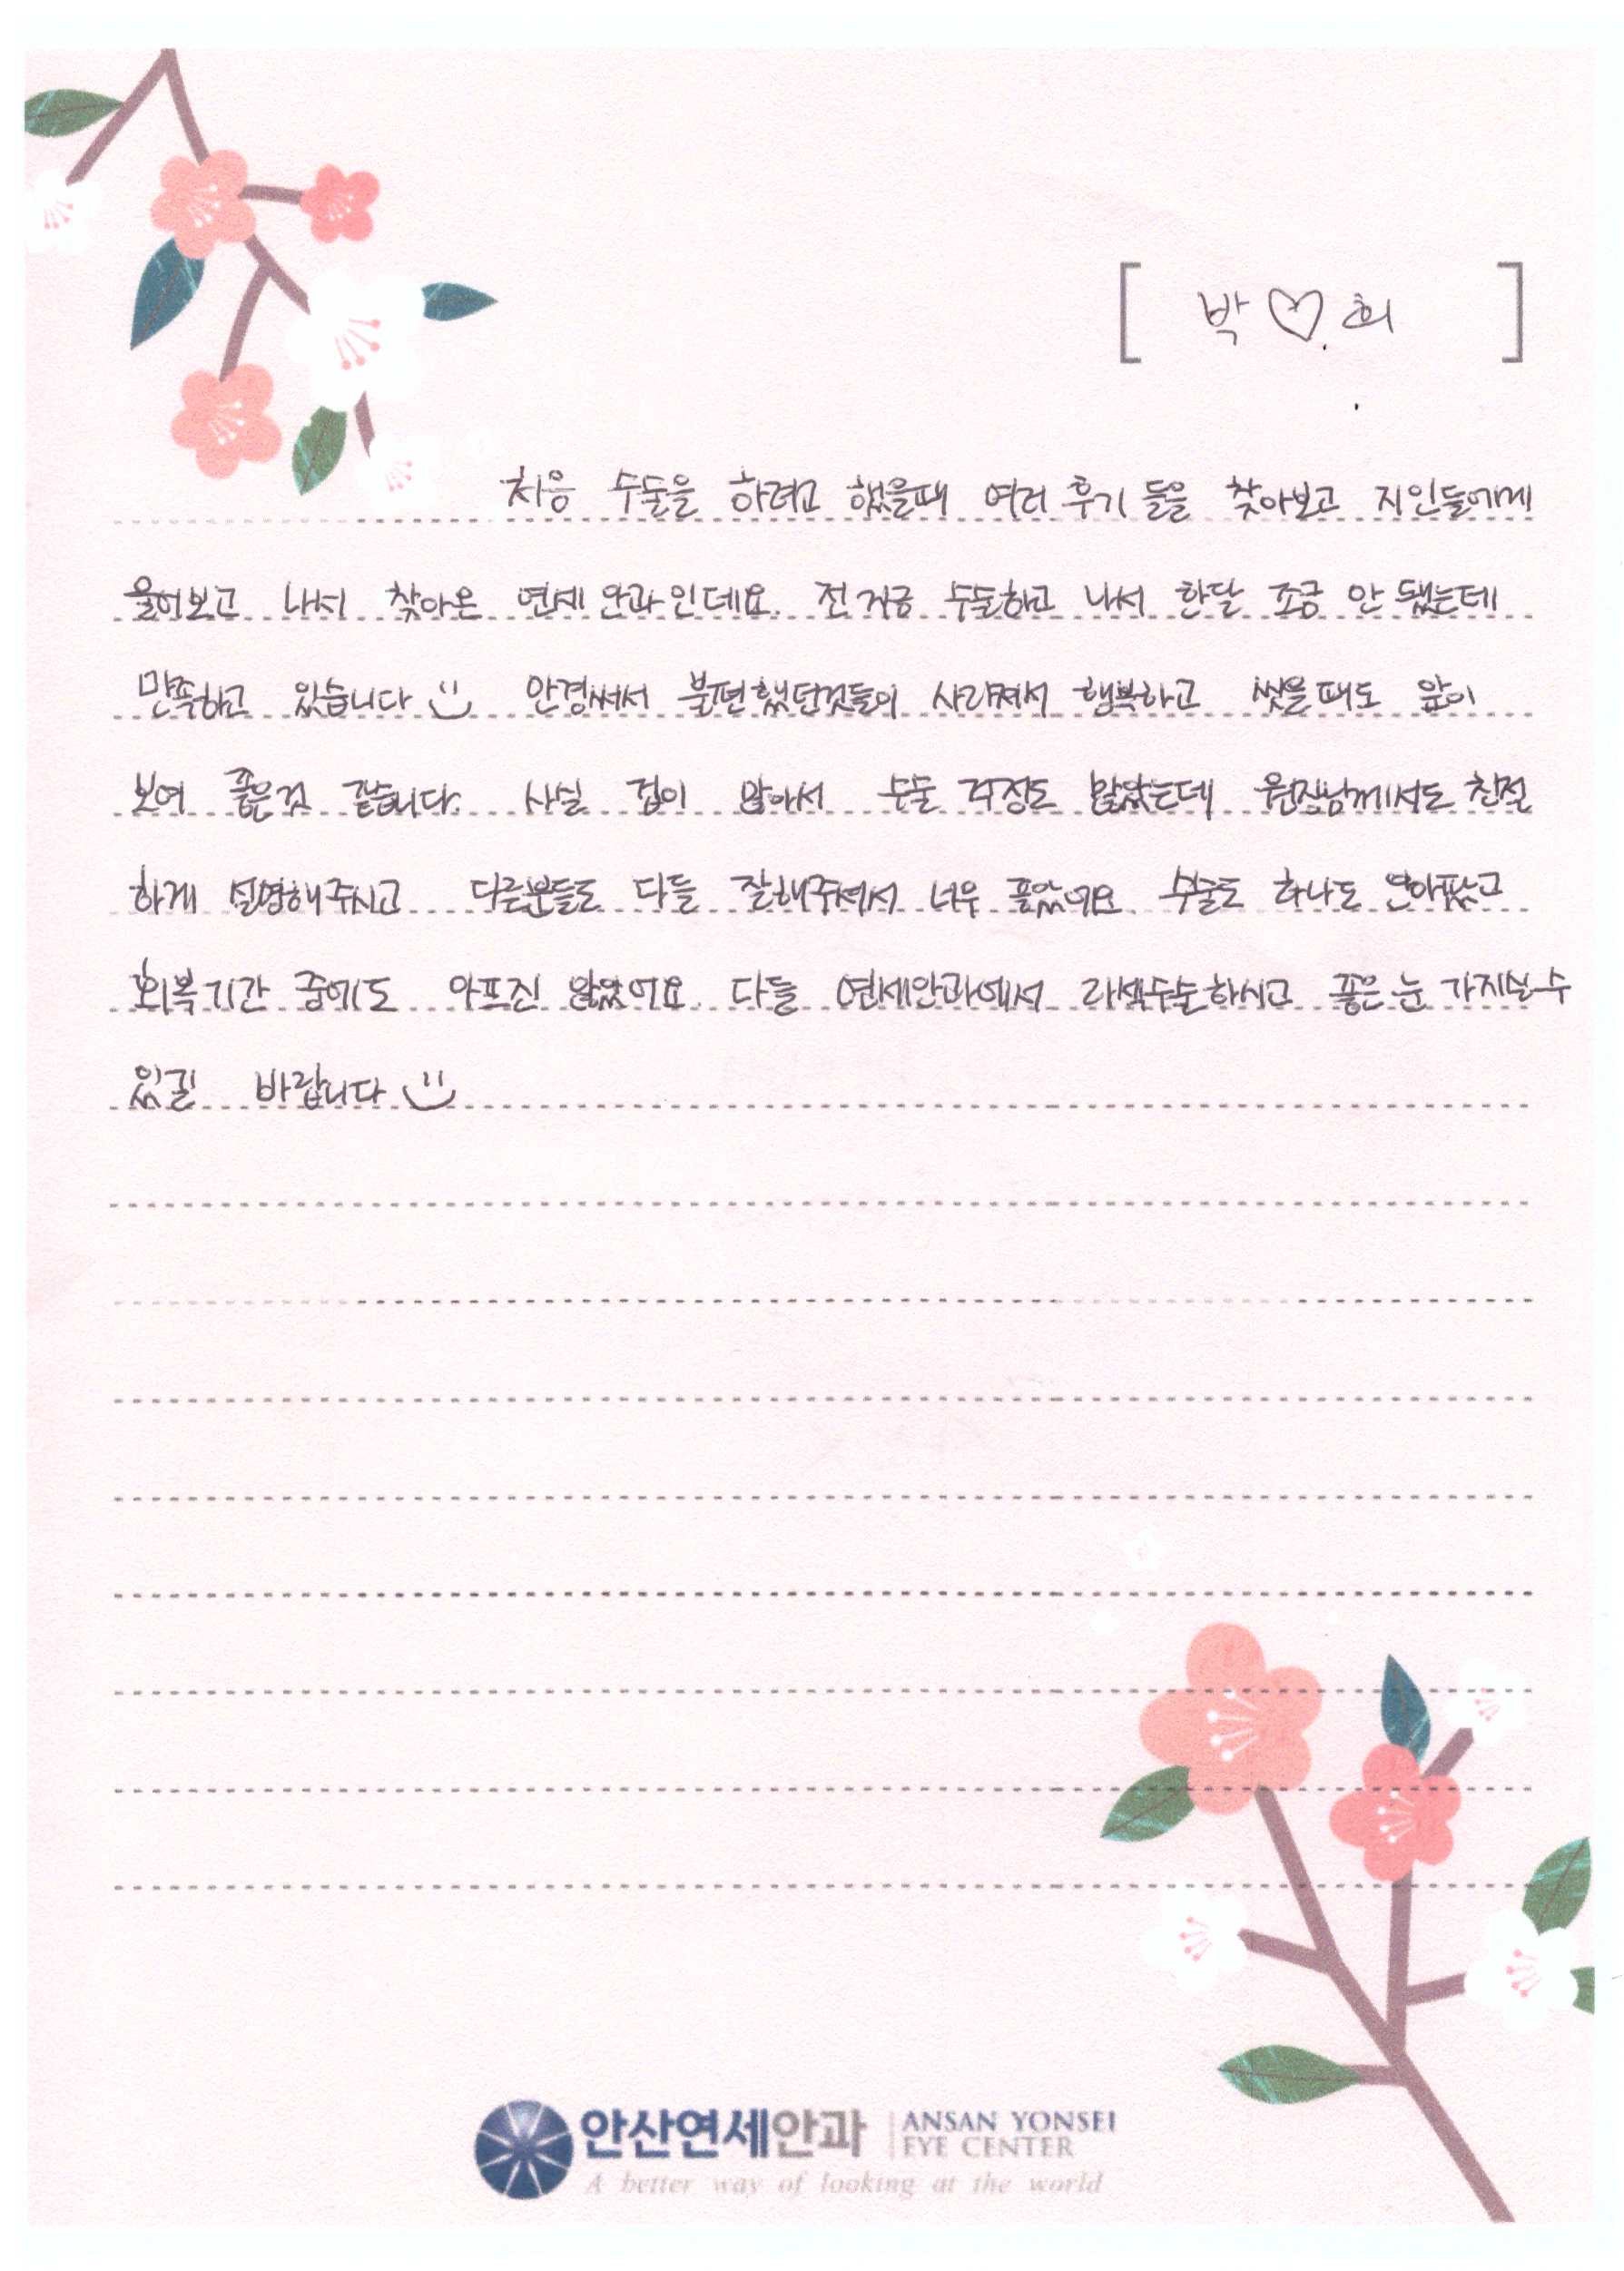 [ 박♡희 ]
처음 수술을 하려고 했을때 여러 후기 들을 찾아보고 지인들에게
물어보고 나서 찾아온 연세 안과인데요. 전 지금 수술하고 나서 한달 조금 안 됐는데
만족하고 있습니다 안경써서 불편했던것들이 사라져서 행복하고 씻을때도 앞이
보여 좋은것 같습니다. 사실 겁이 많아서 수술 걱정도 많았는데 원장님께서도 친절
하게 설명해주시고 다른분들도 다들 잘해주셔서 너무 좋았어요 수술도 하나도 안아팠고
회복기간 중에도 아프진 않았어요. 다들 연세안과에서 라섹수술하시고 좋은 눈 가지실수
있길 바랍니다
안산연세안과 ANSAN YONSEI
EYE CENTER
A better way of looking at the world